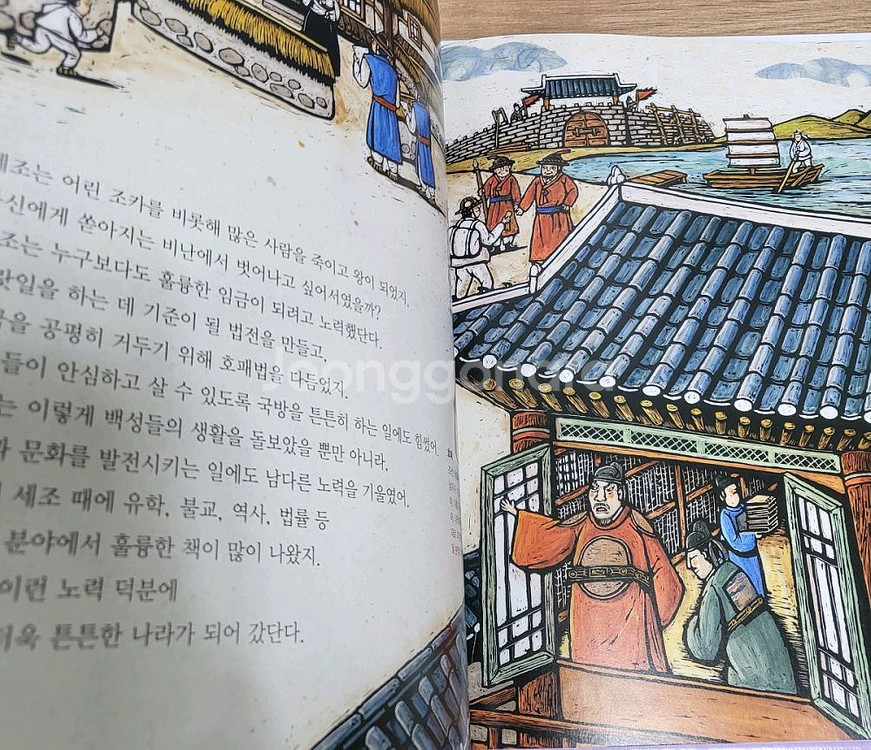 세조는 어린 조카를 비롯해 많은 사람을 죽이고 왕이 되었지.
자신에게 쏟아지는 비난에서 벗어나고 싶어서였을까?
조는 누구보다도 훌륭한 임금이 되려고 노력했단다.
랏일을 하는 데 기준이 될 법전을 만들고,
을 공평히 거두기 위해 호패법을 다듬었지.
들이 안심하고 살 수 있도록 국방을 튼튼히 하는 일에도 힘썼어.
는 이렇게 백성들의 생활을 돌보았을 뿐만 아니라,
문화를 발전시키는 일에도 남다른 노력을 기울였어.
세조 때에 유학, 불교, 역사, 법률 등
분야에서 훌륭한 책이 많이 나왔지.
이런 노력 덕분에
욱 튼튼한 나라가 되어 갔단다.
Joonggonara